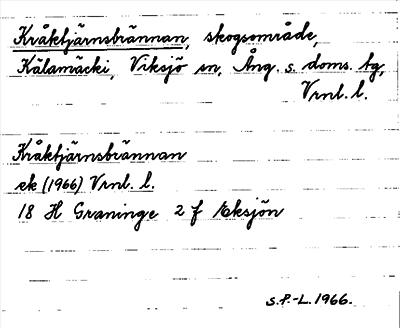 Kråktjärnsbrännan, skogsområde,
Kälamäcki, Viksjö sn, Ång. s. doms. tg,
Vrnl. l.
Kråktjärnsbrännan
ek (1966) Vrnl. l.
18 H Graninge 2 f Eksjön
S.P.-L. 1966.